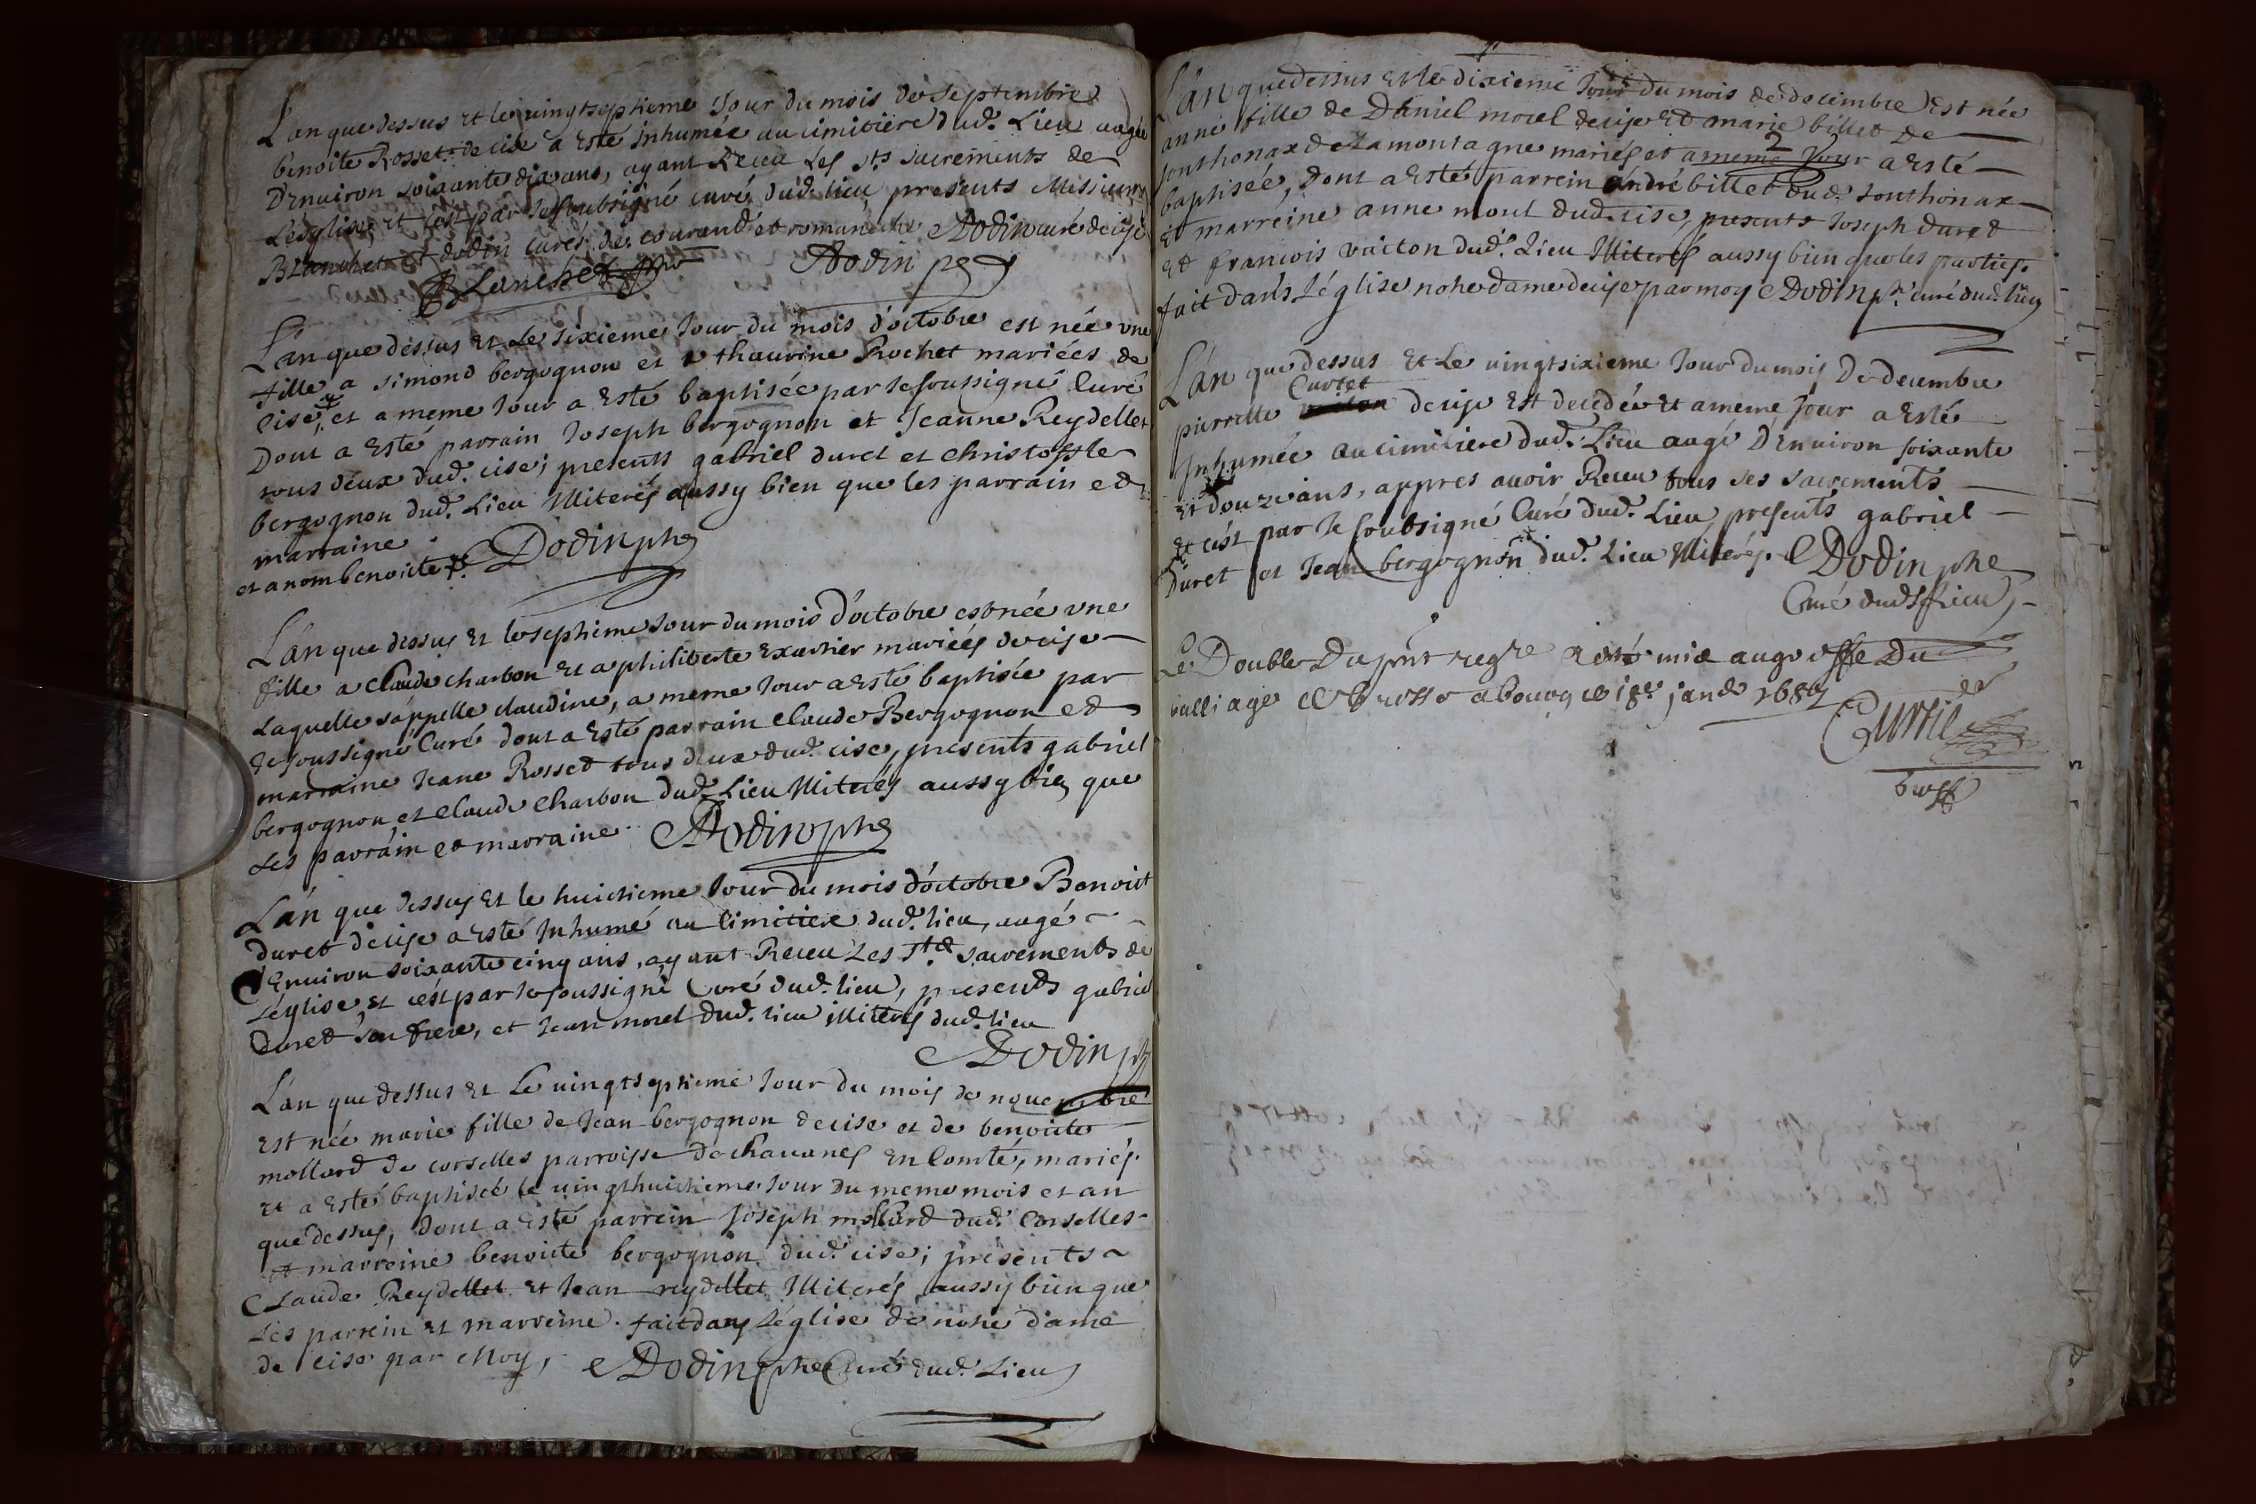 L'an que dessus et le vingtseptieme Jour du mois de Septembre
benoite Rosset de cise a Esté Inhumée au cimitiere dud. Lieu aagée
D'Enuiron soixante dix ans, ayant Receu Les sts sacrements de
L'eglise, et c'est par Je soubsigné curé dud. lieu presents Messieurs
Blanchet et dodin curés de courand et romaneche Dodin curé decise
Blanchet Dodin
L'an que dessus et Le sixieme Jour du mois d'octobre est née vne
fille a simond bergognon et thaurine Rochet mariées de
Cise, et a meme Jour a Esté baptisée par Je soussigné Curé
Dont a Esté parrain Joseph bergognon et Jeanne Reydellet
tous deux dud. cise; presents gabriel duret et christoffle
bergognon dud. Lieu Illiterés aussy bien que les parrain et
marraine.
et a nom benoite. Dodin ptre
L'an que dessus et le septieme Jour du mois d'octobre est née vne
fille a Claude charbon et a philiberte Exartier mariées de cise
Laquelle s'appelle claudine, a meme Jour a Esté baptisée par
Je soussigné Curé dont a Esté parrain Claude Bergognon et
marraine Jeane Rosset tous deux dud. cise, presents gabriel
bergognon et Claude Charbon dud. Lieu Illiterés aussy bien que
Les parrain et marraine. Dodin ptre
L'an que dessus et le huictieme Jour du mois d'octobre Benoict
duret de cise a Esté Inhumé au Cimitiere dud. lieu, aagé
d'Enuiron soixante cinq ans, ayant Receu Les sts sacrements de
L'eglise et c'est par Je soussigné Curé dud. lieu, presents gabriel
duret son frere, et Jean morel dud. lieu illiterés dud. lieu
Dodin ptre
L'an que dessus et Le vingtseptieme Jour du mois de nouembre
Est née marie fille de Jean bergognon de cise et de benoicte
mollard de corselles parroisse de chauanes En Comté, mariés.
et a Esté baptisée le vingthuictieme Jour du meme mois et an
que dessus, dont a Esté parrein Joseph mollard dud. Corselles
et marreine benoicte bergognon dud. cise; presents
Claude Reydellet et Jean reydellet Illiterés, aussy bien que
Les parrein et marreine. fait dans L'eglise de notre dame
de Cise par Moy, Dodin ptre Curé dud. Lieu
L'an que dessus et le dixieme Jour du mois de decembre Est née
anne fille de Daniel morel de cise et marie billet de
sonthonax de La montagne mariés et a meme Jour a Esté
2
baptisée, Dont a Esté parrein andré billet dud. sonthonax
et marreine anne morel dud. cise, presents Joseph duret
et francois vuiton dud. Lieu Illiterés aussy bien que les parties.
fait dans L'église notre dame de cise par moy Dodin ptre curé dud. lieu
L'an que dessus Et Le vingtsixieme Jour du mois De decembre
Curtet
pierrette de cise Est decedée et a meme Jour a Esté
Inhumée au cimitiere dud. Lieu aagé D'Enuiron soixante
et douze ans, appres auoir Receu tous ses sacrements
et c'est par Je soubsigné Curé dud. Lieu, presents gabriel
duret et Jean bergognon dud. Lieu Illiterés. Dodin ptre
Curé dud. Lieu
Le Double Du pnt regre a esté mis au greffe Du
balliage de bresse a bourg ce 18e janr 1689